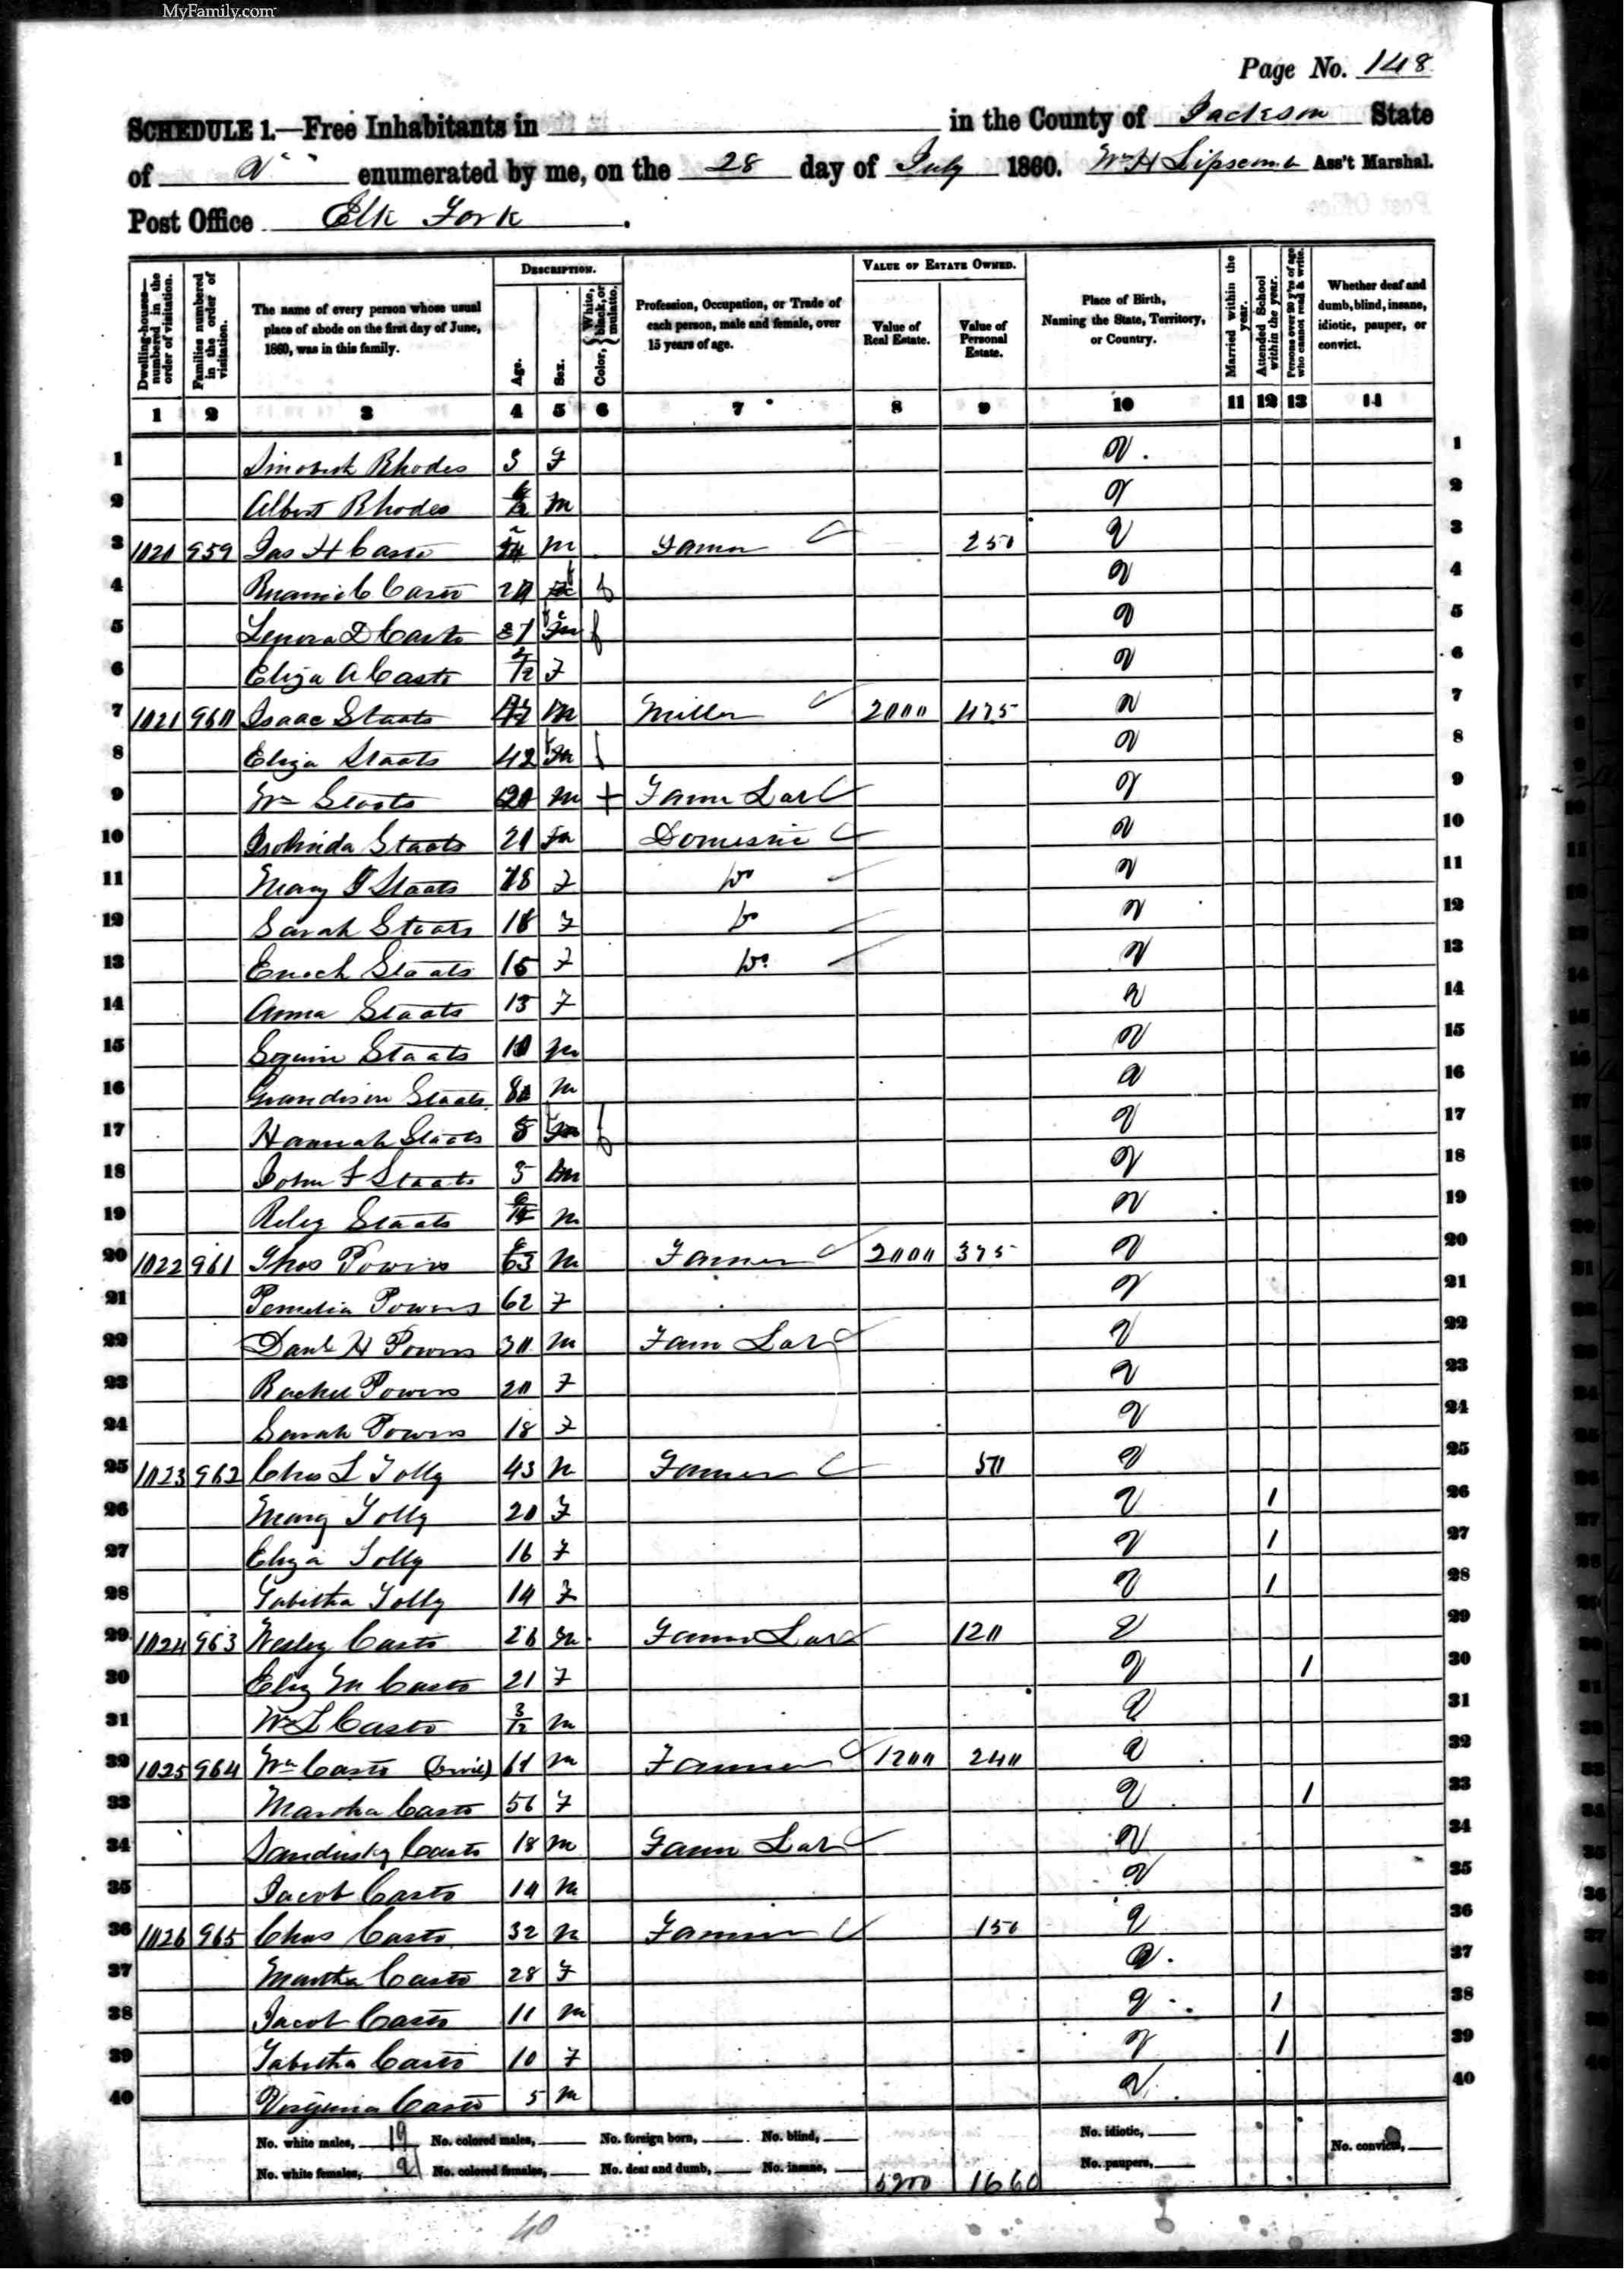 MyFamily.com
Page No. 148
SCHEDULE 1.—Free Inhabitants in in the County of Jackson State
of Va enumerated by me, on the 28 day of July 1860. Wm H Lipscomb Ass't Marshal.
Post Office Elk Fork.
Dwelling-houses—numbered in the order of visitation.
Families numbered in the order of visitation.
The name of every person whose usual place of abode on the first day of June, 1860, was in this family.
DESCRIPTION.
Age.
Sex.
Color, { White, black, or mulatto.
Profession, Occupation, or Trade of each person, male and female, over 15 years of age.
VALUE OF ESTATE OWNED.
Value of Real Estate.
Value of Personal Estate.
Place of Birth, Naming the State, Territory, or Country.
Married within the year.
Attended School within the year.
Persons over 20 y'rs of age who cannot read & write.
Whether deaf and dumb, blind, insane, idiotic, pauper, or convict.
1 2 3 4 5 6 7 8 9 10 11 12 13 14
1 Rhodes 3 F V 1
2 Albert Rhodes 6/12 m V 2
3 1020 959 Jas H Casto m Farmer 250 V 3
4 Casto 20 f V 4
5 Lenora D Casto f V 5
6 Eliza A Casto 2/12 F V 6
7 1021 960 Isaac Staats m Miller 2000 475 V 7
8 Eliza Staats 42 f V 8
9 Wm Staats 20 m + Farm Lab V 9
10 Staats 20 Domestic V 10
11 Mary J Staats 18 F Do V 11
12 Sarah Staats 18 F Do V 12
13 Enoch Staats 15 F Do V 13
14 Anna Staats 13 F V 14
15 Squire Staats 10 m V 15
16 Grandison Staats 8 m V 16
17 Hannah Staats 8 f V 17
18 John F Staats 5 m V 18
19 Riley Staats m V 19
20 1022 961 Thos Powers 63 m Farmer 2000 375 V 20
21 Pemelia Powers 62 F V 21
22 Danl H Powers 30 m Farm Lab V 22
23 Rachel Powers 20 F V 23
24 Sarah Powers 18 F V 24
25 1023 962 Chas L Tolly 43 m Farmer 50 V 25
26 Mary Tolly 20 F V 1 26
27 Eliza Tolly 16 F V 1 27
28 Tabitha Tolly 14 F V 1 28
29 1024 963 Wesley Casto 26 m Farm Lab 120 V 29
30 Eliz M Casto 21 F V 1 30
31 Wm L Casto 3/12 m V 31
32 1025 964 Wm Casto 61 m Farmer 1200 240 V 32
33 Martha Casto 56 F V 1 33
34 Sandusky Casto 18 m Farm Lab V 34
35 Jacob Casto 14 m V 35
36 1026 965 Chas Casto 32 m Farmer 150 V 36
37 Martha Casto 28 F V 37
38 Jacob Casto 11 m V 1 38
39 Tabitha Casto 10 F V 1 39
40 Virginia Casto 5 m V 40
No. white males, 19 No. colored males, No. foreign born, No. blind, No. idiotic, No. convicts,
No. white females, 21 No. colored females, No. deaf and dumb, No. insane, 5200 1660 No. paupers,
40